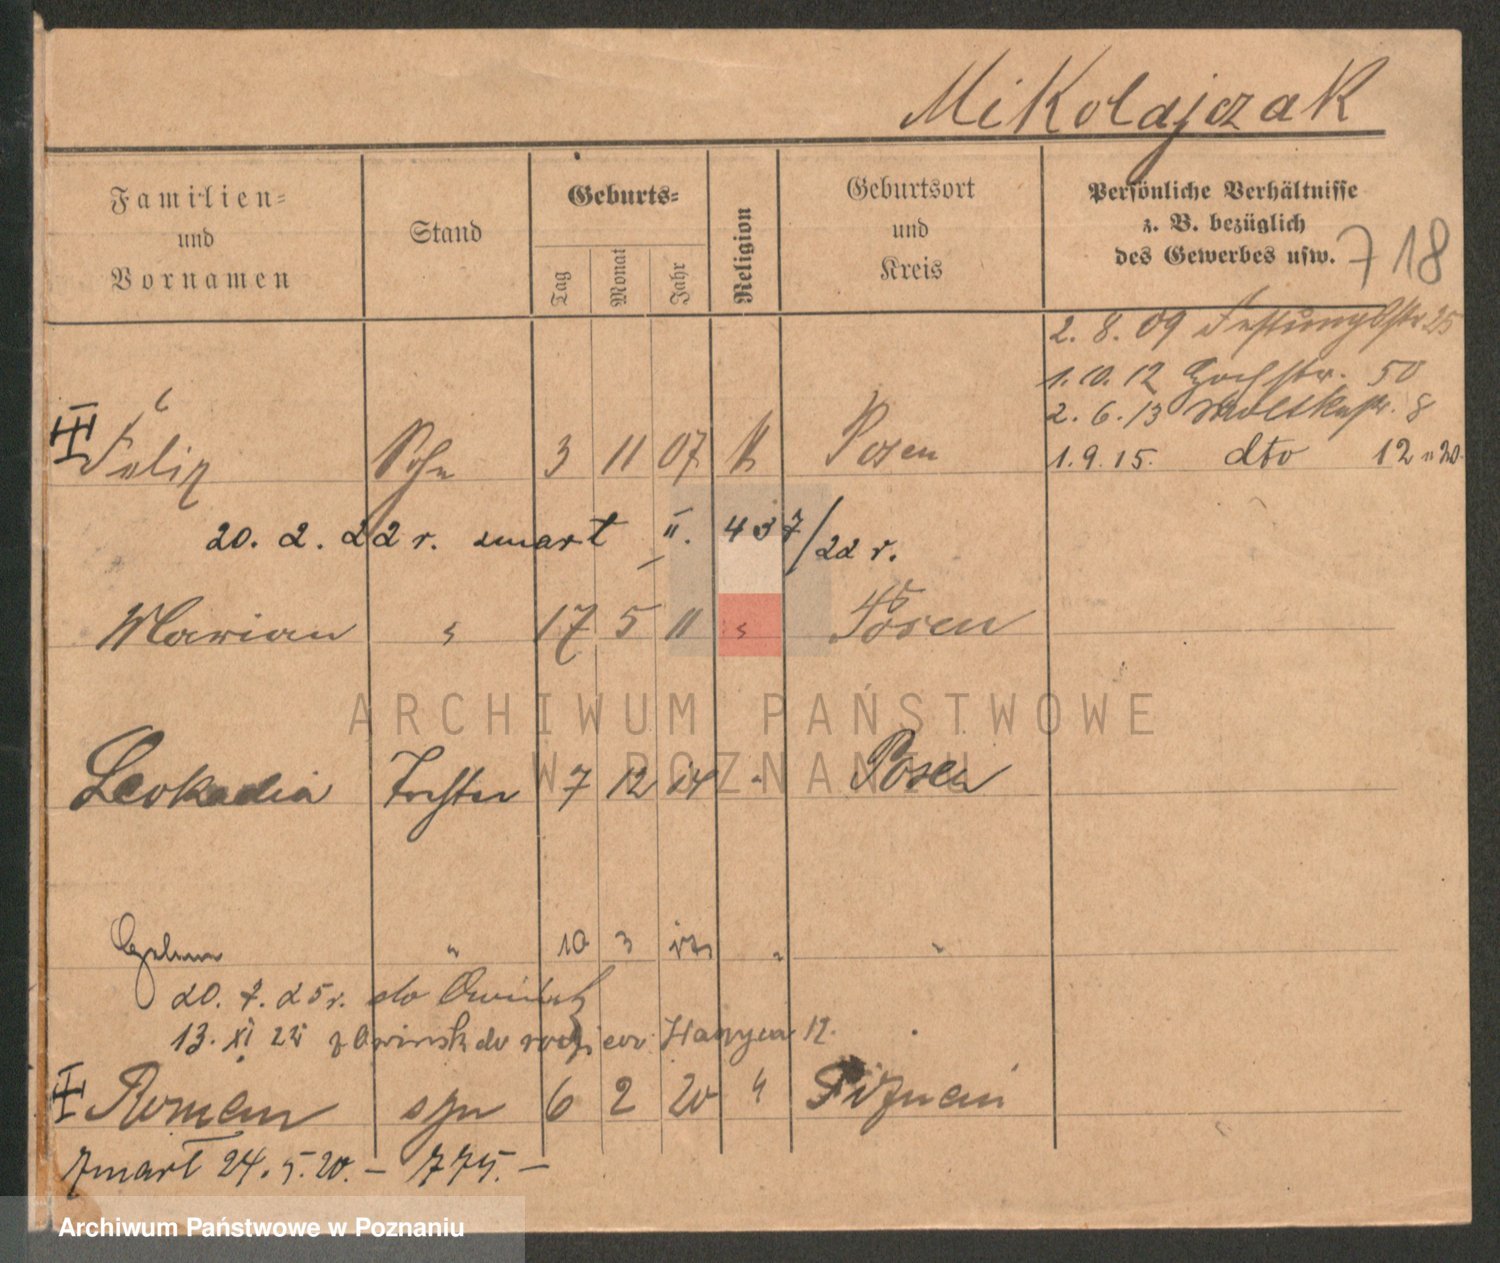 Mikolajczak
Familien=
und
Vornamen
Stand
Geburts=
Tag
Monat
Jahr
Religion
Geburtsort
und
Kreis
Persönliche Verhältnisse
z. B. bezüglich
des Gewerbes usw.
718
2. 8. 09 Festungsstr 25
1. 10. 12 Hochstr. 50
2. 6. 13 Moltkestr. 8
Felix Sohn 3 11 07 K Posen
1. 9. 15. dto 12 u 20.
20. 2. 22 r. zmart II. 437/22 r.
Marian " 17 5 11 " Posen
Leokadia Tochter 7 12 14 " Posen
" 10 3 " "
20. 7. 25 r. do Owińsk
13. XI 22 z Owińsk do
Roman syn 6 2 20 " Poznań
Zmarł 24. 5. 20. – 775. –
ARCHIWUM PAŃSTWOWE
W POZNANIU
Archiwum Państwowe w Poznaniu